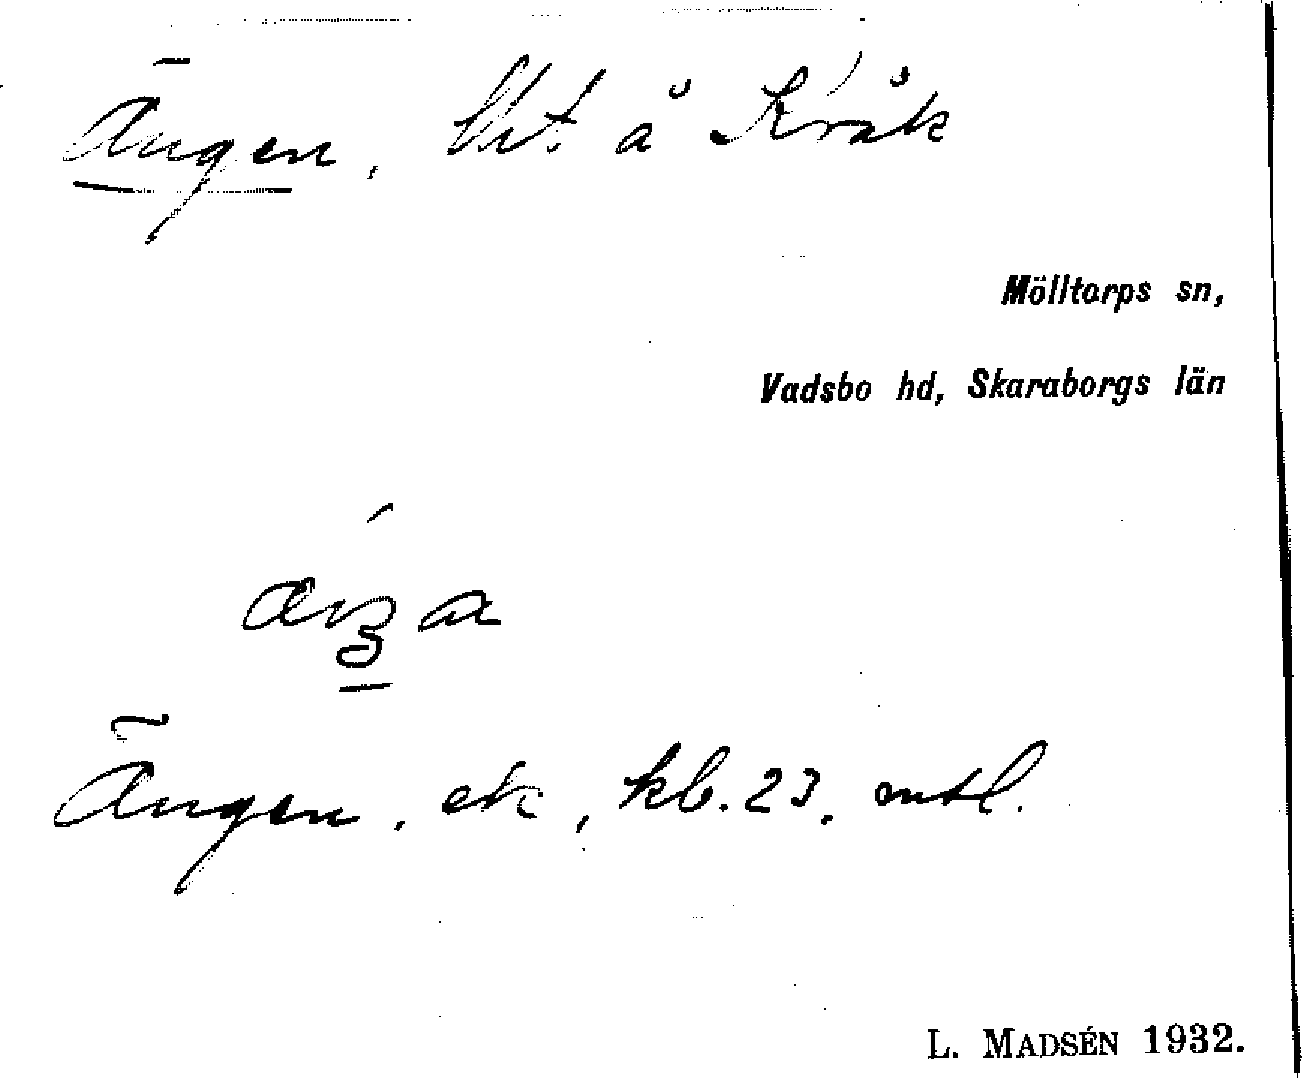 Ängen, t. å Kråk
Mölltorps sn,
Vadsbo hd, Skaraborgs län
Ängen, ek, kb. 23, mtl.
L. MADSÉN 1932.